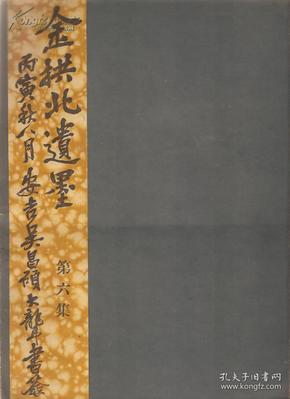 金拱北遺墨
第六集
丙寅秋八月安吉吴昌碩大聾書簽
孔夫子旧书网